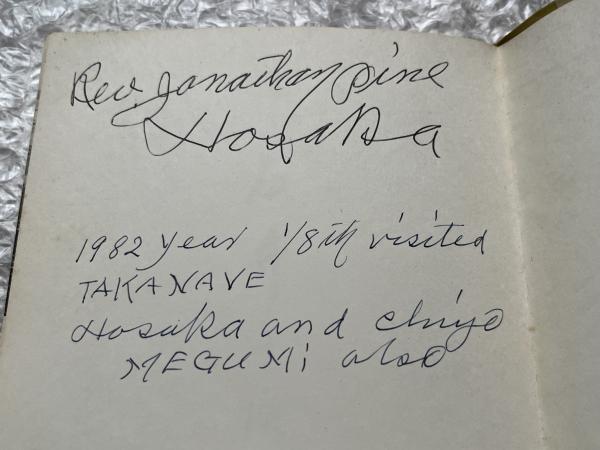 Rev. Jonathan pine
Hosaka
1982 year 1/8th visited
TAKANAVE
Hosaka and chiyo
MEGUMi also